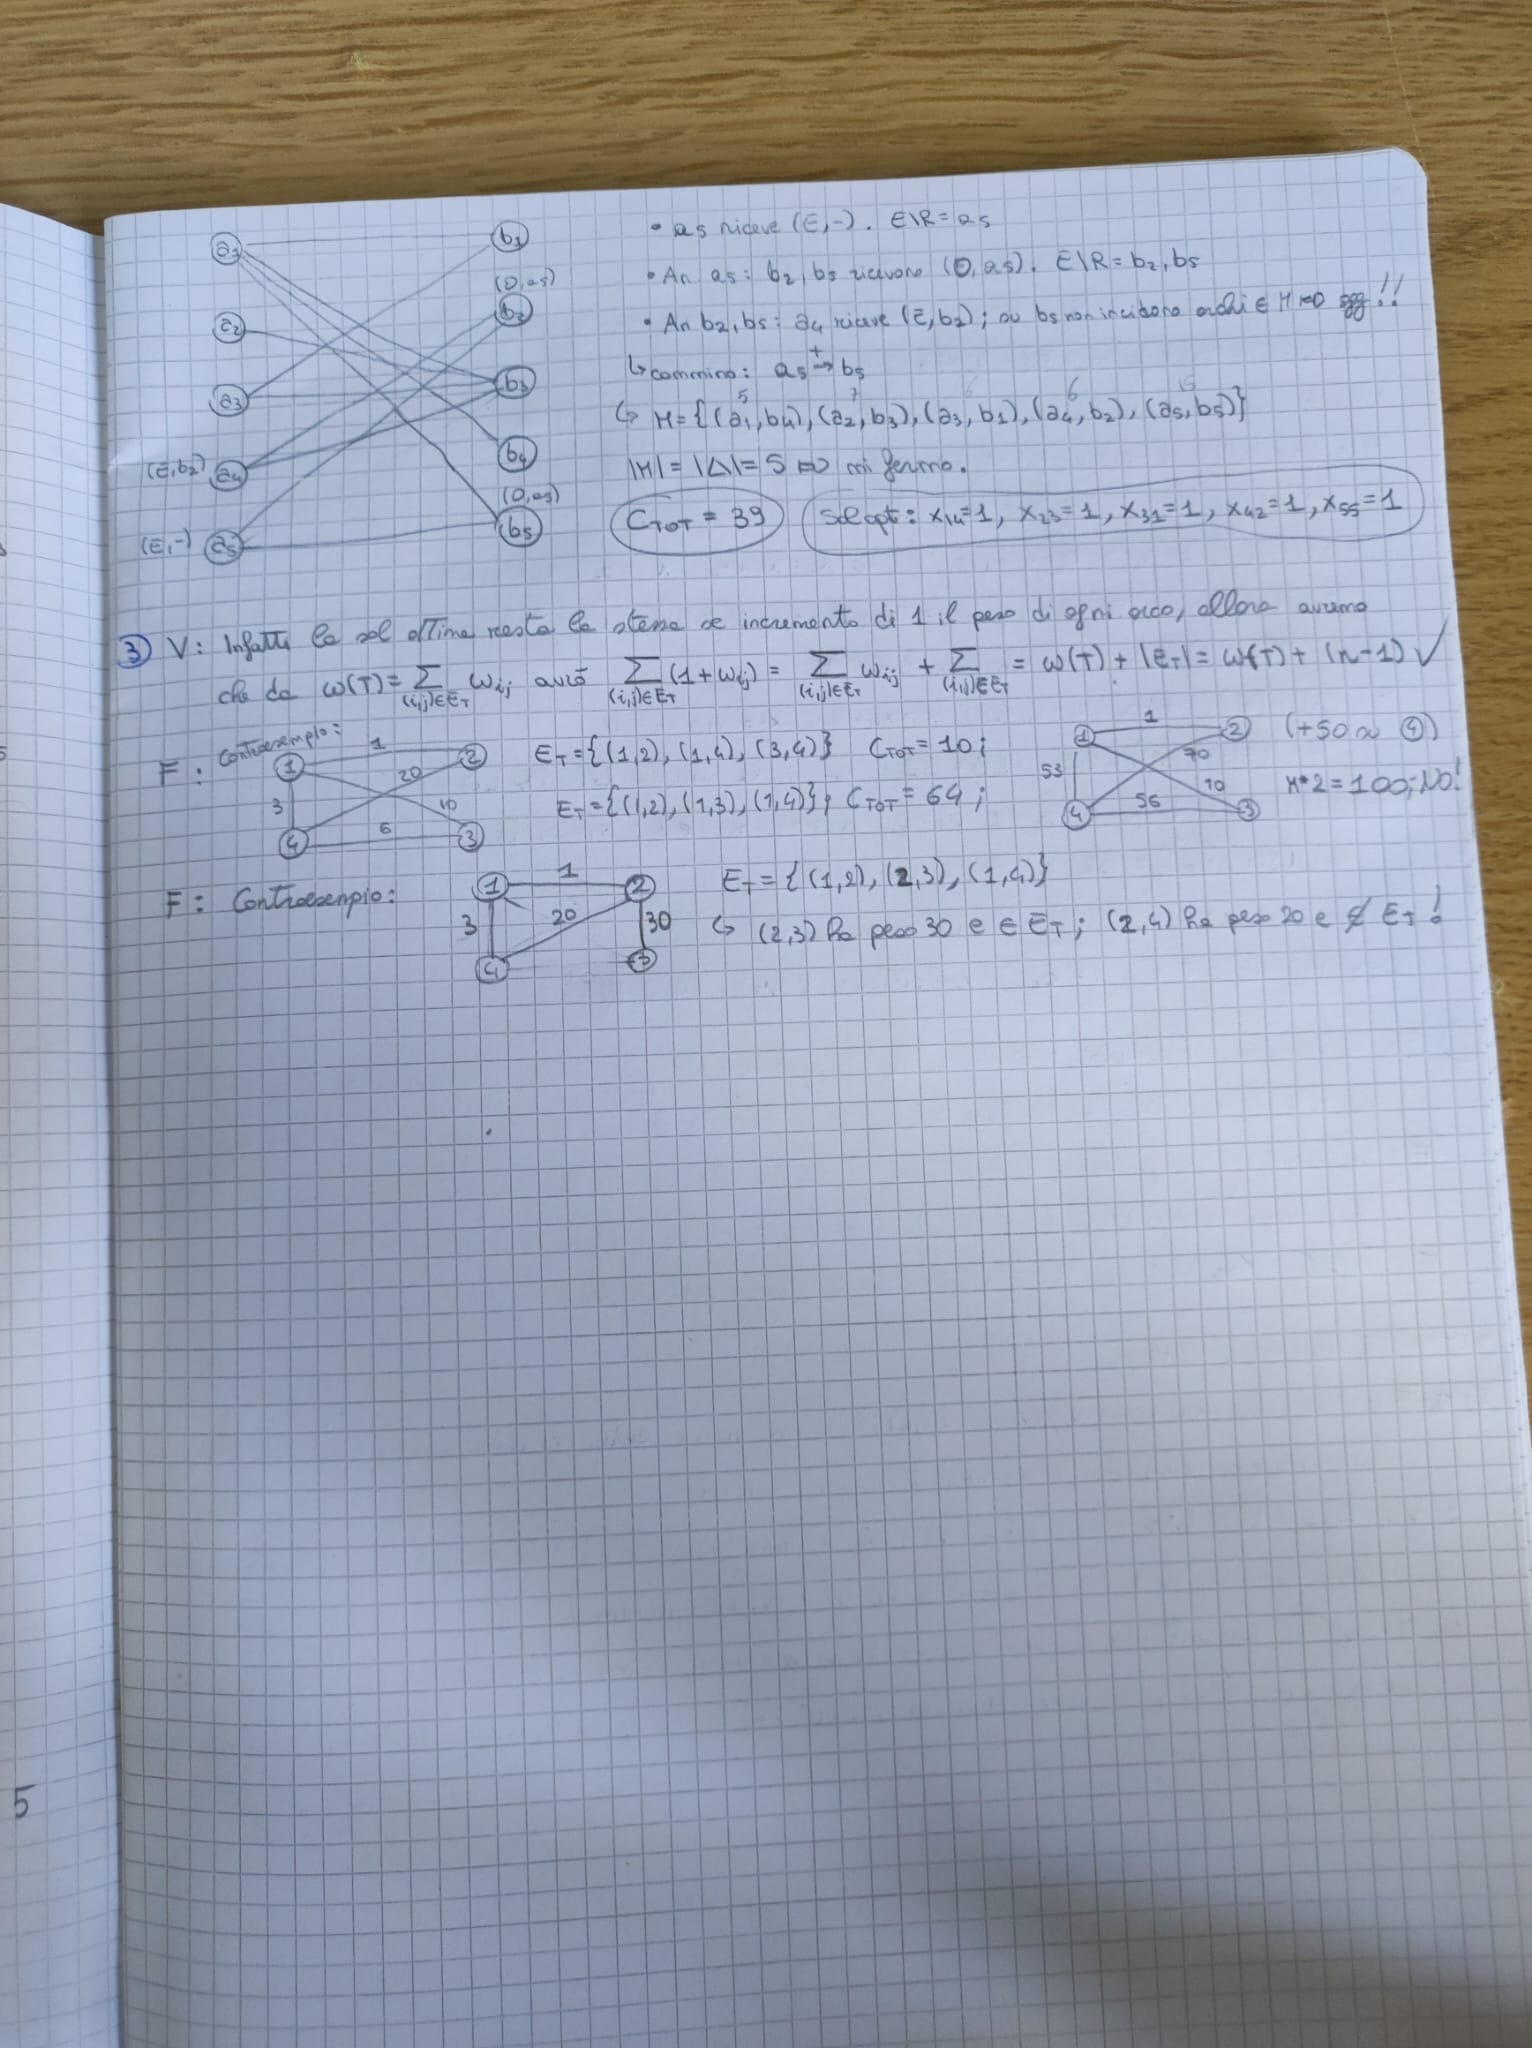 a1 b1
(0,a5)
a2 b2
a3 b3
b4
(E,b2) a4
(0,a5)
(E,-) a5 b5
• a5 riceve (E,-). E\R = a5
• An a5: b2, b5 ricevono (0,a5). E\R = b2, b5
• An b2, b5: a4 riceve (E,b2); su b5 non incidono archi ∈ M ⇒ !!
↳ cammino: a5 →+ b5
5 7 6 6 15
↳ M = {(a1,b4), (a2,b3), (a3,b1), (a4,b2), (a5,b5)}
|M| = |Δ| = 5 ⇒ mi fermo.
CTOT = 39 Sol opt: x14=1, x23=1, x31=1, x42=1, x55=1
③ V: Infatti la sol ottima resta la stessa se incremento di 1 il peso di ogni arco, allora avremo
che da w(T) = Σ(i,j)∈ET wij avrò Σ(i,j)∈ET (1+wij) = Σ(i,j)∈ET wij + Σ(i,j)∈ET = w(T) + |ET| = w(T) + (n-1) ✓
F: Controesempio:
1 1 2
3 20 10
4 6 3
ET = {(1,2), (1,4), (3,4)} CTOT = 10;
ET = {(1,2), (1,3), (1,4)}; CTOT = 64;
1 1 2 (+50 ④)
53 70 10
4 56 3
M*2 = 100; No!
F: Controesempio:
1 1 2
3 20 30
4 3
ET = {(1,2), (2,3), (1,4)}
↳ (2,3) ha peso 30 e ∈ ET; (2,4) ha peso 20 e ∉ ET!
5